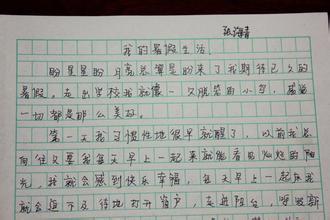 张海青
我的暑假生活
盼星星盼月亮总算是盼来了我期待已久的
暑假。走出学校我就像一只脱笼的小鸟，感觉
一切都是那么美好。
第一天我习惯性地很早就醒了，以前我总
向往夏天每天早上一起来就能看见灿烂的阳
光，我就会感到快乐幸福，每天早上一起床我
就会迫不及待地打开窗户，走进阳台，呼吸新